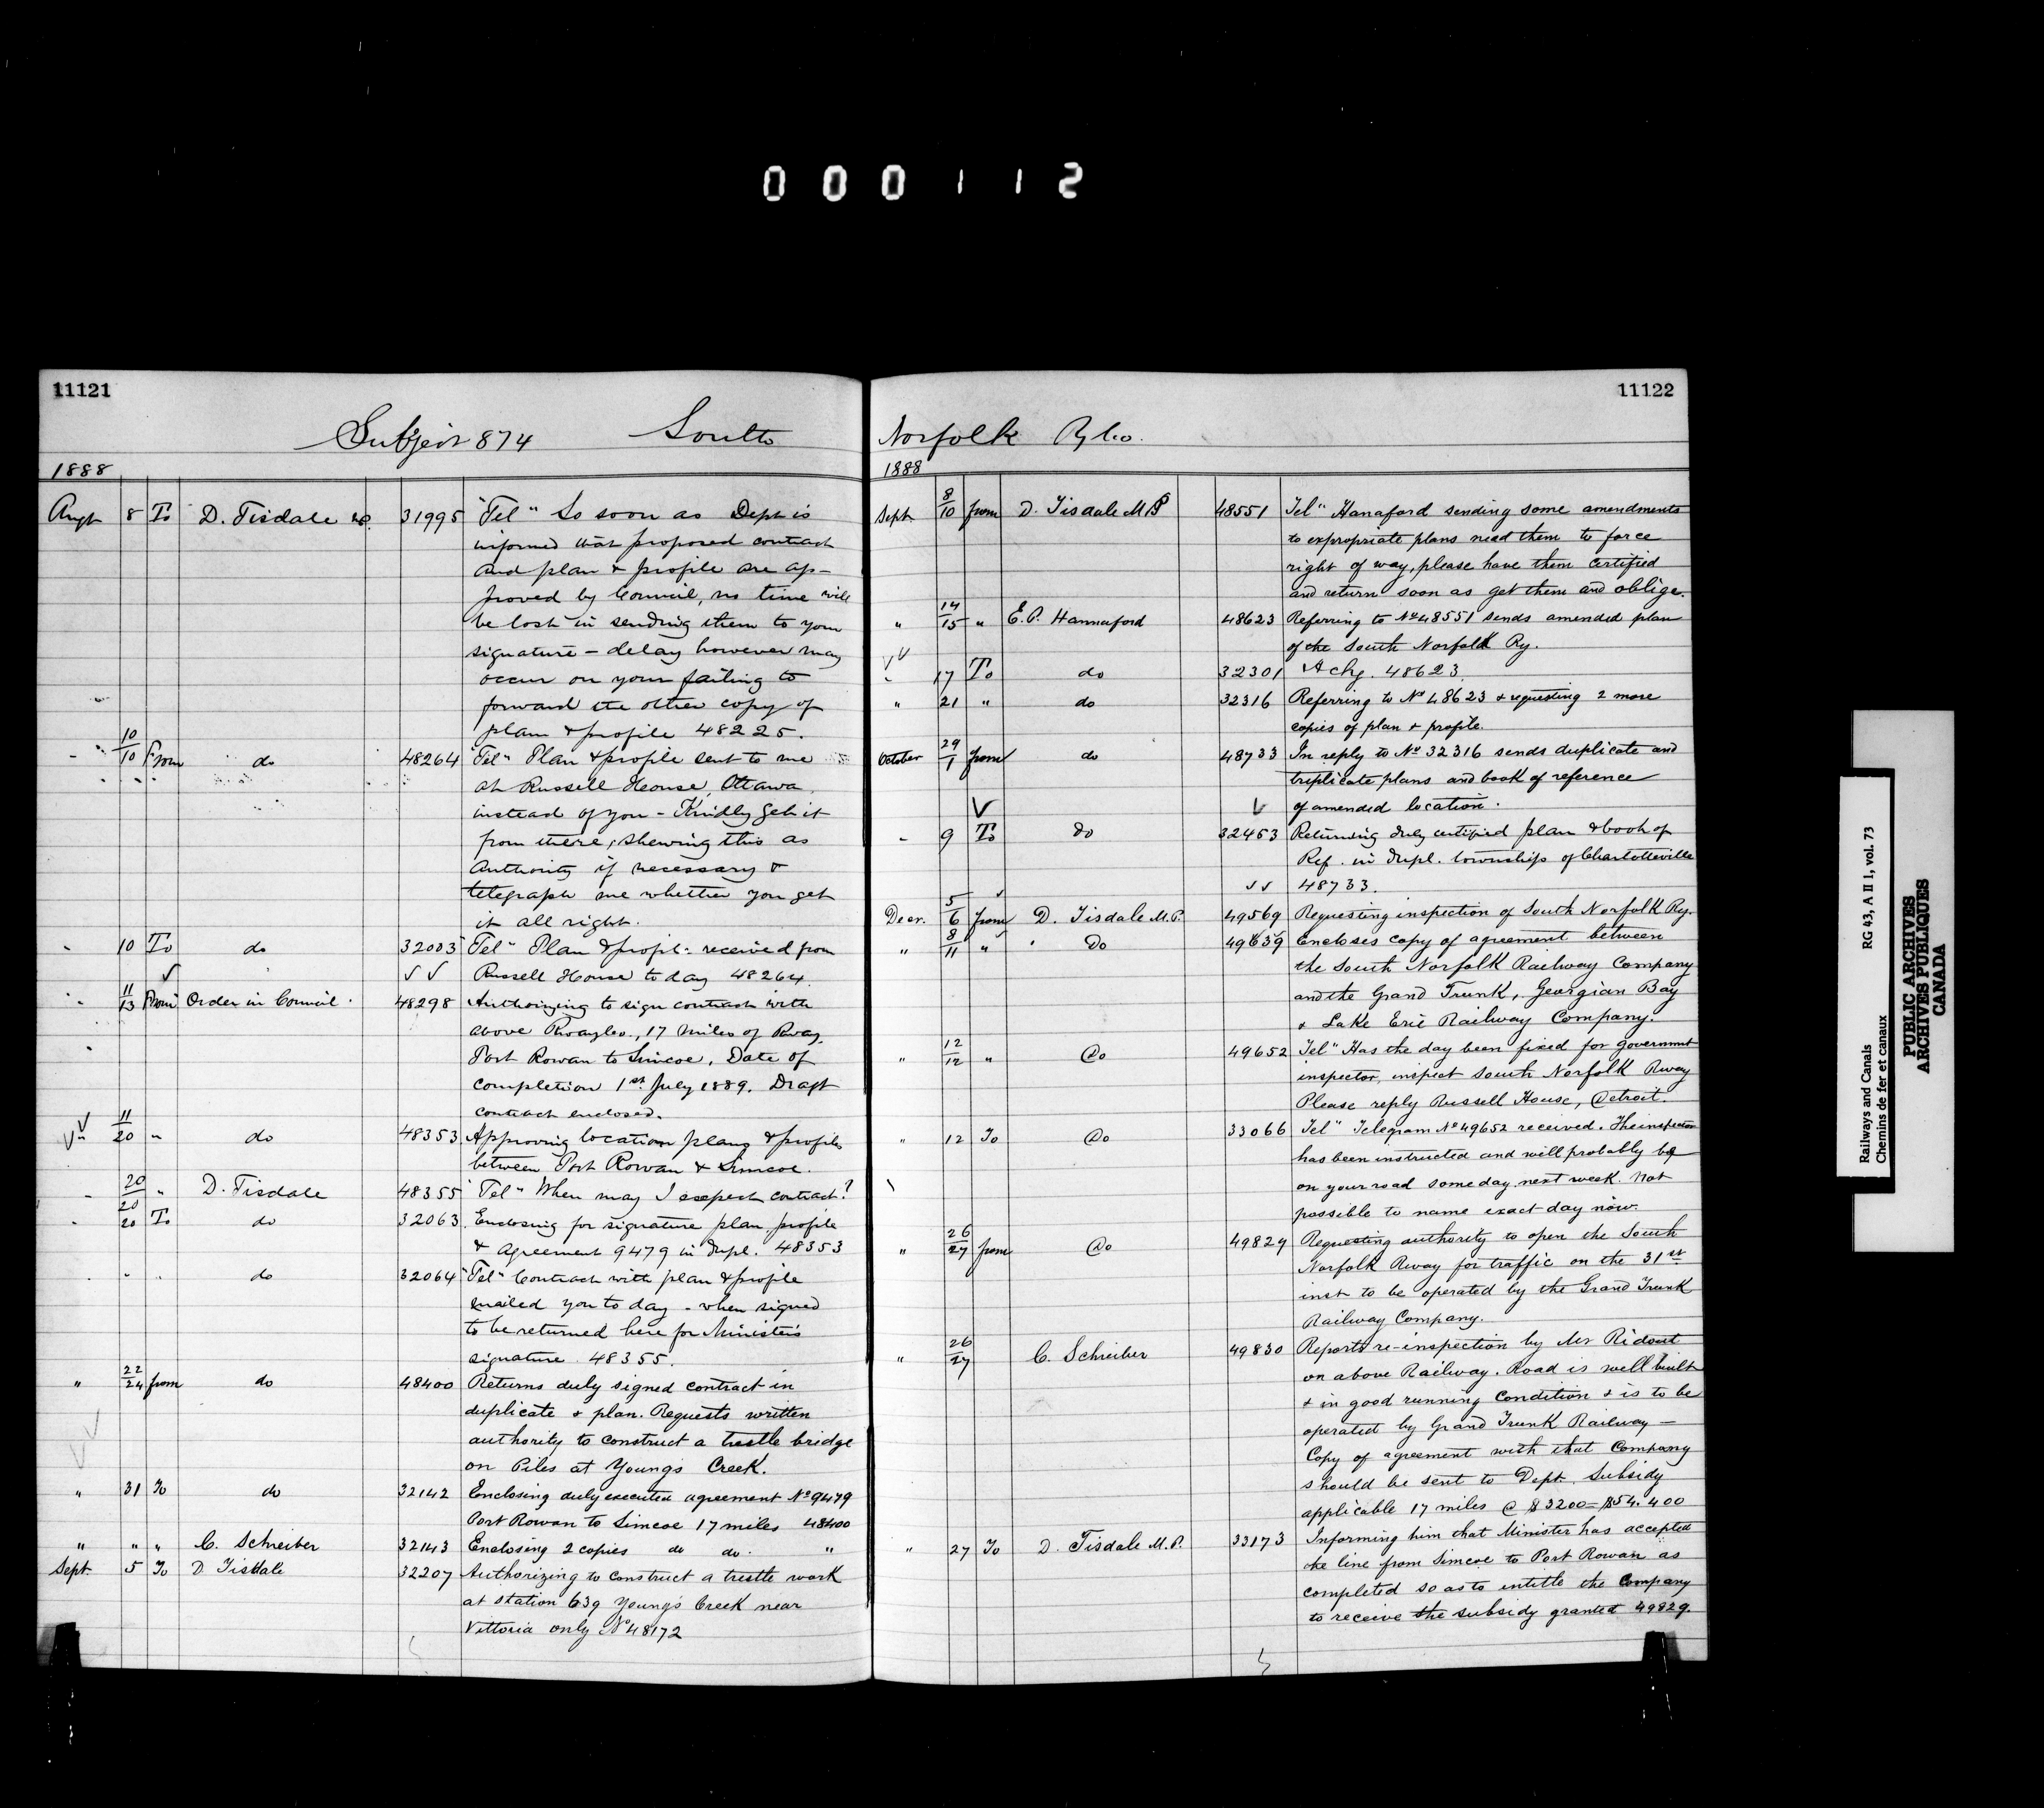 000112
11121
Subject 874 South
1888
Augt 8 To D. Tisdale 31995 "Tel" So soon as Dept is
informed that proposed contract
and plan & profile are ap-
proved by Council, no time will
be lost in sending them to your
signature - delay however may
occur on your failing to
forward the other copy of
plan & profile 48225.
" 10/10 From do 48264 "Tel" Plan & profile sent to me
at Russell House, Ottawa,
instead of you - Kindly get it
from there, shewing this as
Authority if necessary &
telegraph me whether you get
it all right.
" 10 To do 32003 "Tel" Plan & profile received from
√ √ √ Russell House to day 48264.
" 11/13 From Order in Council. 48298 Authorizing to sign contract with
above Rwayco., 17 miles of Rway,
Port Rowan to Simcoe. Date of
completion 1st July 1889. Draft
contract enclosed.
" 11/20 " do 48353 Approving location plans & profiles
between Port Rowan & Simcoe.
" 20/20 " D. Tisdale 48355 "Tel" When may I expect contract?
" 20 To do 32063 Enclosing for signature plan, profile
& agreement 9479 in dupl. 48353
" " " do 32064 "Tel" Contract with plan & profile
mailed you to day - when signed
to be returned here for Minister's
signature 48355.
" 22/24 from do 48400 Returns duly signed contract in
duplicate & plan. Requests written
authority to construct a trestle bridge
on Piles at Young's Creek.
" 31 To do 32142 Enclosing duly executed agreement No 9479
Port Rowan to Simcoe 17 miles 48400
" " " C. Schreiber 32143 Enclosing 2 copies do do. "
Sept 5 To D Tisdale 32207 Authorizing to construct a trestle work
at station 639 Young's Creek near
Vittoria only No 48172
11122
Norfolk Ry Co.
1888
Sept. 8/10 from D. Tisdale M.P. 48551 Tel" Hanaford sending some amendments
to expropriate plans need them to force
right of way, please have them certified
and return soon as get them and oblige.
" 14/15 " E.P. Hannaford 48623 Referring to No 48551 sends amended plan
of the South Norfolk Ry.
" 17 To do 32301 Ackg. 48623.
" 21 " do 32316 Referring to No 48623 & requesting 2 more
copies of plan & profile.
October 29/1 from do 48733 In reply to No 32316 sends duplicate and
triplicate plans and book of reference
of amended location.
" 9 To do 32453 Returning duly certified plan & book of
Ref. in dupl. township of Charlotteville
√ √ 48733.
Decr. 5/6 from D. Tisdale M.P. 49569 Requesting inspection of South Norfolk Ry.
" 8/11 " Do 49639 Encloses copy of agreement between
the South Norfolk Railway Company
and the Grand Trunk, Georgian Bay
& Lake Erie Railway Company.
" 12/12 " Do 49652 Tel" Has the day been fixed for government
inspector, inspect South Norfolk Rway
Please reply Russell House, Detroit.
" 12 To Do 33066 Tel" Telegram No 49652 received. The inspector
has been instructed and will probably be
on your road some day next week. Not
possible to name exact day now.
" 26/27 from Do 49829 Requesting authority to open the South
Norfolk Rway for traffic on the 31st
inst to be operated by the Grand Trunk
Railway Company.
" 26/27 C. Schreiber 49830 Reports re-inspection by Mr Ridout
on above Railway. Road is well built
& in good running condition & is to be
operated by Grand Trunk Railway -
Copy of agreement with that Company
should be sent to Dept. Subsidy
applicable 17 miles @ $3200 = $54.400
" 27 To D. Tisdale M.P. 33173 Informing him that Minister has accepted
the line from Simcoe to Port Rowan as
completed so as to entitle the Company
to receive the subsidy granted 49829.
Railways and Canals RG 43, A II 1, vol. 73
Chemins de fer et canaux
PUBLIC ARCHIVES
ARCHIVES PUBLIQUES
CANADA